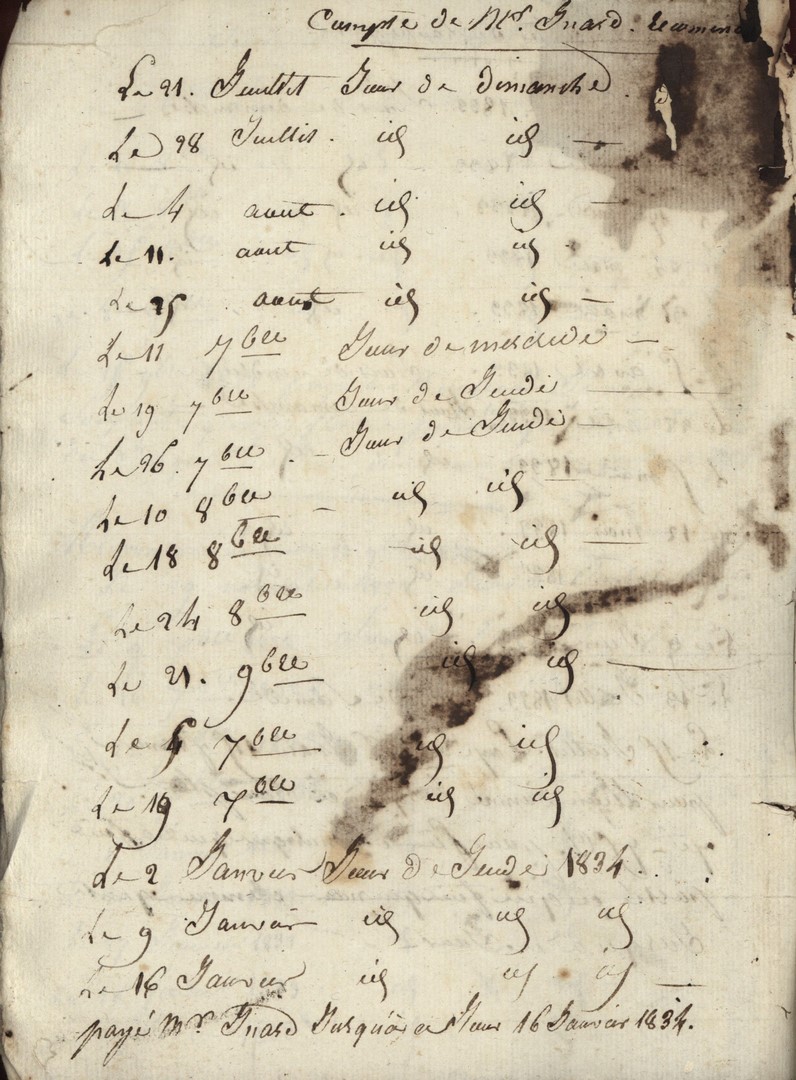 Compte de Mr. Inard.
Le 21. Juillit Jour de dimanche
Le 28 Juillit. id id
Le 4 aout. id id
Le 11. aout id id
Le 25 aout id id
Le 11 7bre Jour de mercredi
Le 19 7bre Jour de Jeudi
Le 26. 7bre - Jour de Jeudi
Le 10 8bre - id id
Le 18 8bre id id
Le 24 8bre id id
Le 21. 9bre id id
Le 5 7bre id id
Le 19 7bre id id
Le 2 Janvier Jour de Jeudi 1834.
Le 9 Janvier id id id
Le 16 Janvier id id id
payé Mr Inard Jusqu'à ce Jour 16 Janvier 1834.